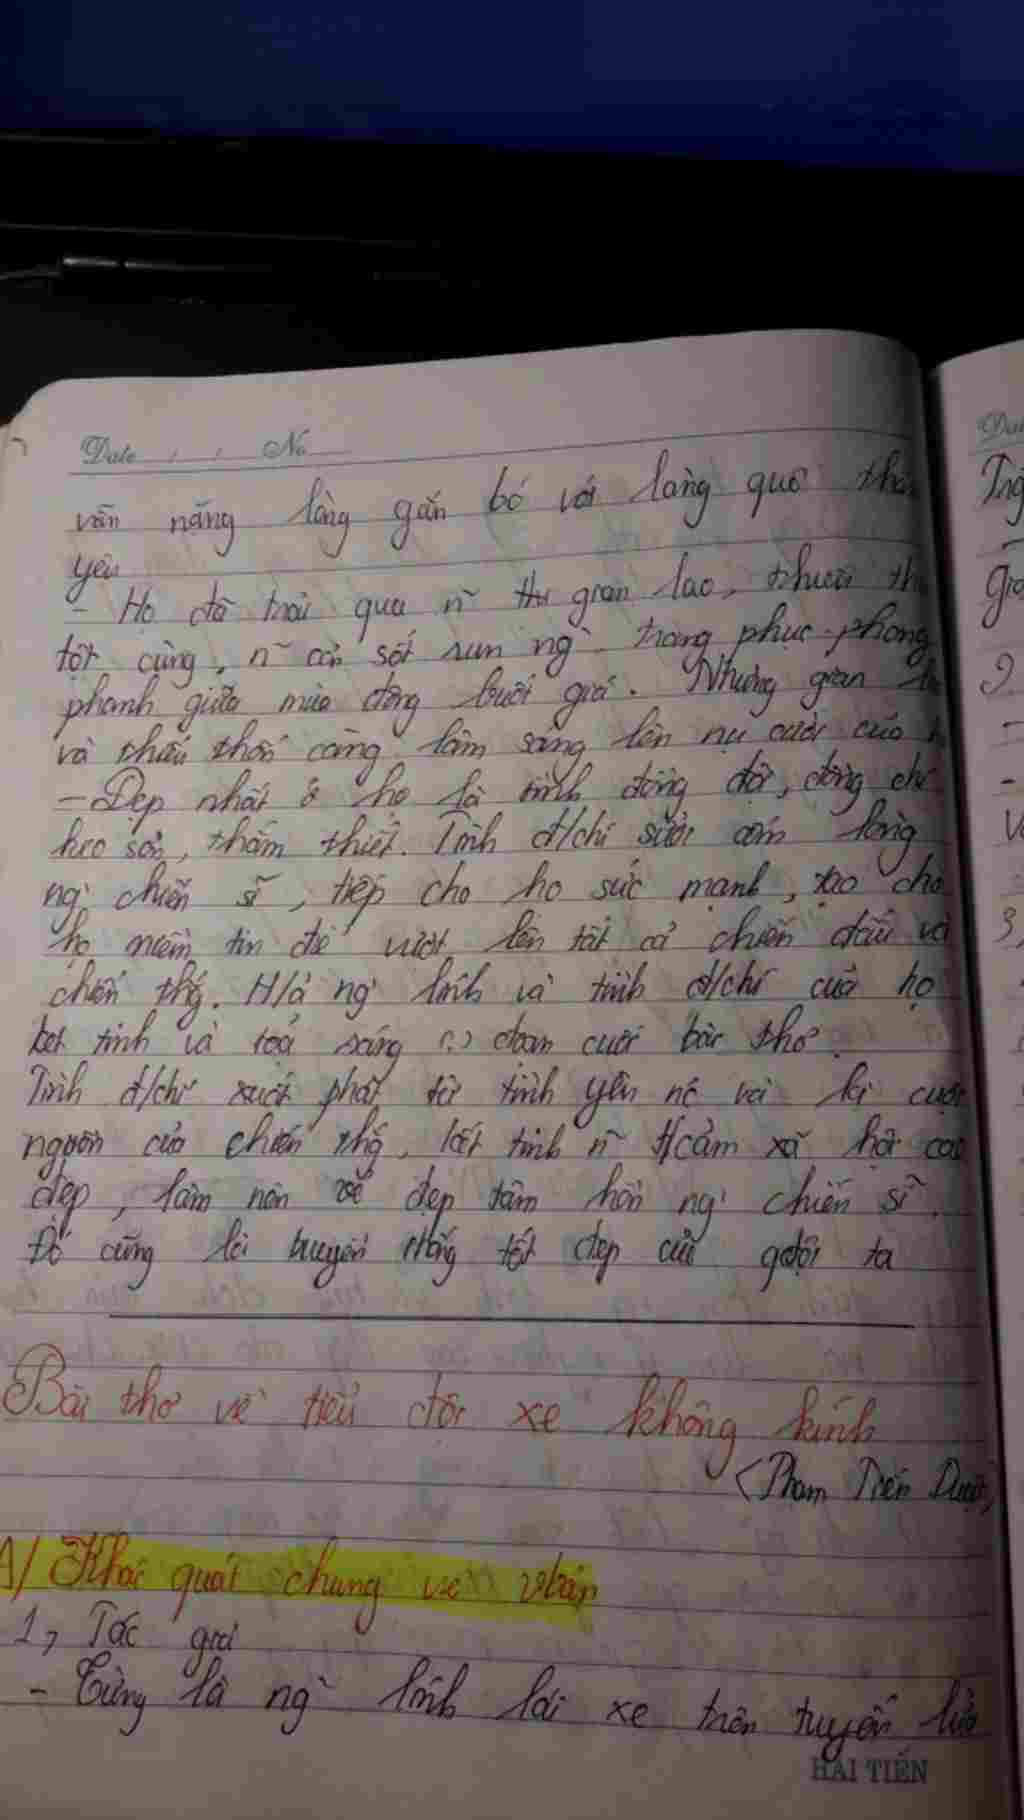 Date / / No
vẫn nặng lòng gắn bó với làng quê
yêu
- Họ đã trải qua n~ thg gian lao, thiếu
tột cùng, n~ cơn sốt run ng` trang phục phong
phanh giữa mùa đông buốt giá. Nhưng gian
và thiếu thốn càng làm sáng lên nụ cười của
- Đẹp nhất ở họ là tình đồng đội, đồng chí
keo sơn, thắm thiết. Tình đ/chí sưởi ấm lòng
ng` chiến sĩ, tiếp cho họ sức mạnh, tạo cho
họ niềm tin để vượt lên tất cả chiến đấu và
chiến thg. H/ả ng` lính và tình đ/chí của họ
kết tinh và toả sáng (.) đoạn cuối bài thơ.
Tình đ/chí xuất phát từ tình yêu nc với
nguồn của chiến thg, kết tinh n~ t/cảm xã hội cao
đẹp, làm nên vẻ đẹp tâm hồn ng` chiến sĩ.
Đó cũng là truyền thống tốt đẹp của qđội ta
Bài thơ về tiểu đội xe không kính
(Phạm Tiến Duật)
A/ Khái quát chung về vbản
1, Tác giả
- Từng là ng` lính lái xe trên tuyến lửa
HẢI TIẾN